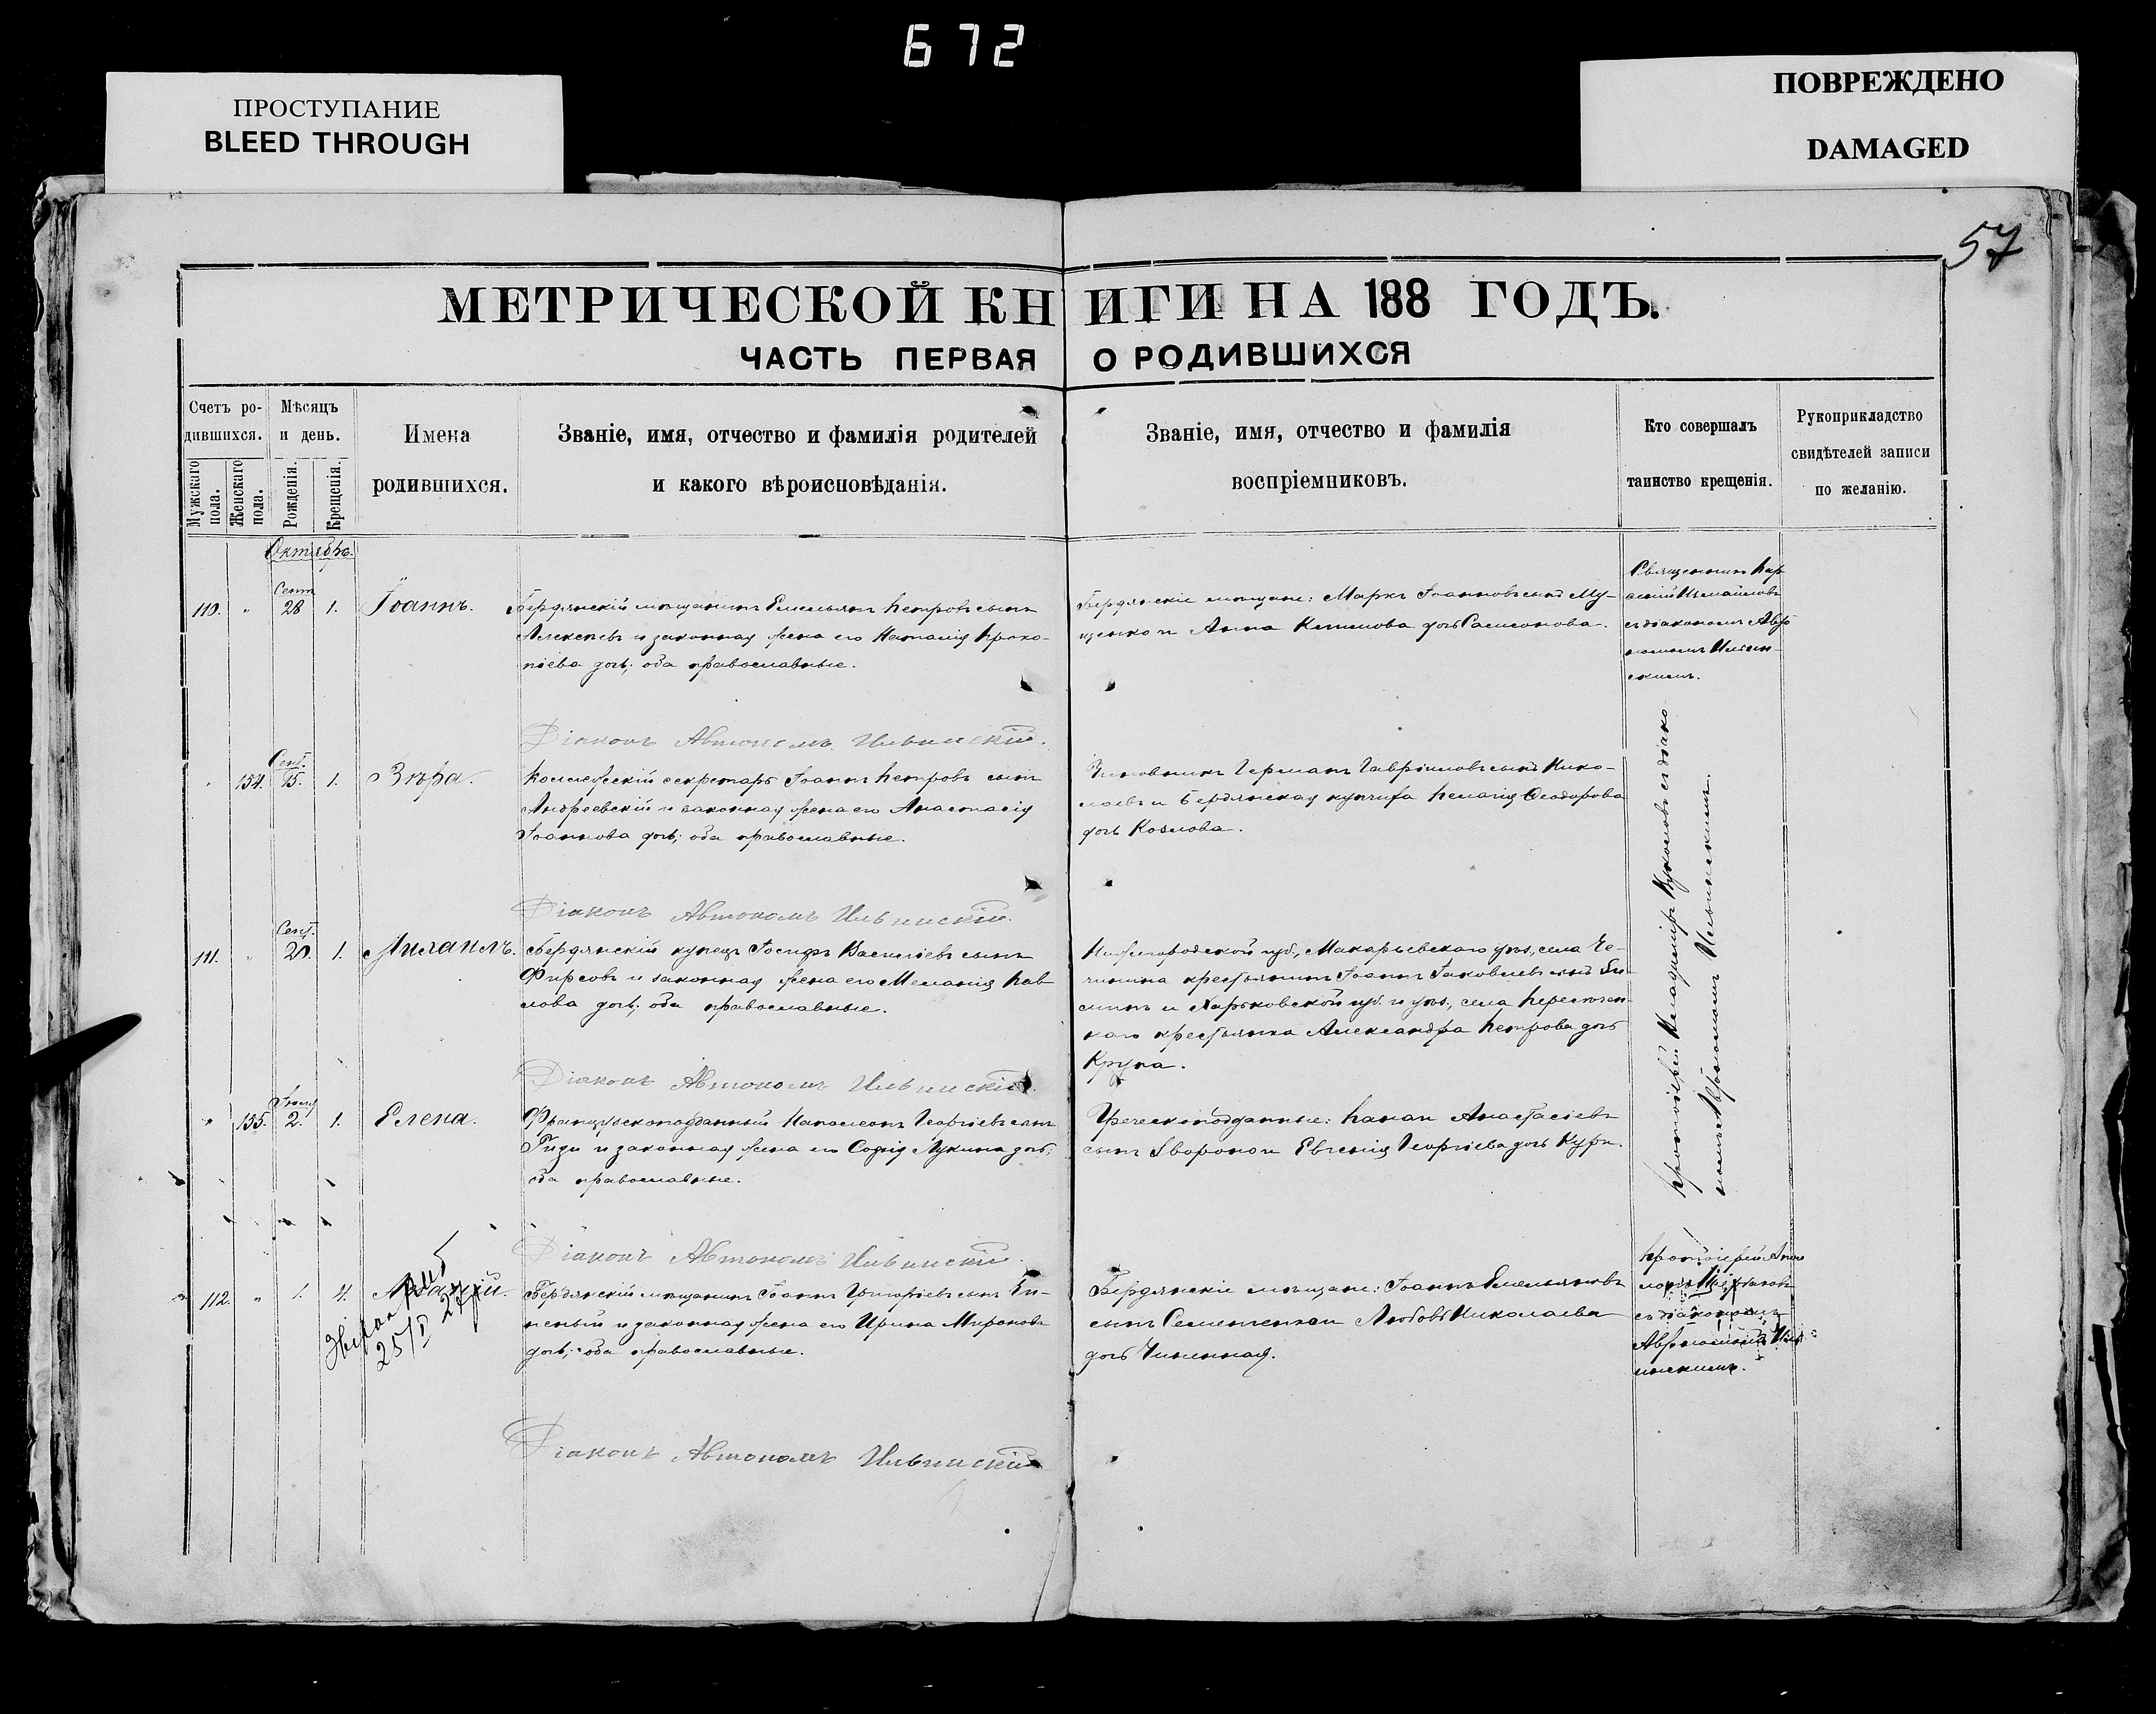 672
ПРОСТУПАНИЕ
BLEED THROUGH
ПОВРЕЖДЕНО
DAMAGED
57
МЕТРИЧЕСКОЙ КНИГИ НА 188 ГОДЪ.
ЧАСТЬ ПЕРВАЯ О РОДИВШИХСЯ
Счетъ ро-
дившихся.
Мужскаго пола.
Женскаго пола.
Мѣсяцъ
и день.
Рожденія.
Крещенія.
Имена
родившихся.
Званіе, имя, отчество и фамилія родителей
и какого вѣроисповѣданія.
Званіе, имя, отчество и фамилія
воспріемниковъ.
Кто совершалъ
таинство крещенія.
Рукоприкладство
свидѣтелей записи
по желанію.
Октябрь.
110. " Сент 28 1. Іоаннъ.
Бердянскій мѣщанинъ Емельянъ Петровъ сынъ
Алексѣевъ и законная жена его Наталія Проко-
піева дочь; оба православные.
Бердянскіе мѣщане: Маркъ Іоанновъ сынъ Му-
щенко и Анна дочь Самсонова.
Священникъ
съ діакономъ Авто
номомъ Ильин-
скимъ.
Діаконъ Автономъ Ильинскій.
" 154. Сент. 15. 1. Вѣра.
Коллежскій секретарь Іоаннъ Петровъ сынъ
Андреевскій и законная жена его Анастасія
Іоаннова дочь; оба православные.
Чиновникъ Германъ Гавріиловъ сынъ Нико-
лаевъ и Бердянская купчиха Пелагія Ѳеодорова
дочь Козлова.
Діаконъ Автономъ Ильинскій.
111. " Сент. 20. 1. Михаилъ.
Бердянскій купецъ Іосифъ Василіевъ сынъ
Фирсовъ и законная жена его Меланія Пав
лова дочь; оба православные.
Нижегородской губ., Макарьевскаго уѣз., села
крестьянинъ Іоаннъ Іаковлевъ сынъ
и Харьковской губ. и уѣз., села
крестьянка Александра Петрова дочь
Крупа.
Діаконъ Автономъ Ильинскій.
" 155. 2. 1. Елена.
Французскоподданный Наполеонъ Георгіевъ сынъ
и законная жена его Софія Лукина дочь;
оба православные.
Греческоподданные: Панаи Анастасіевъ
сынъ и Евгенія Георгіева дочь Кури.
Протоіерей съ діако
номъ Автономомъ Ильинскимъ.
Діаконъ Автономъ Ильинскій.
112. " 1. 4.
25/I 27
Бердянскій мѣщанинъ Іоаннъ Григоріевъ сынъ
и законная жена его Ирина Миронова
дочь; оба православные.
Бердянскіе мѣщане: Іоаннъ Емельяновъ
сынъ Семетенко и Любовь Николаева
дочь
Протоіерей
съ діакономъ
Автономомъ Иль
инскимъ.
Діаконъ Автономъ Ильинскій